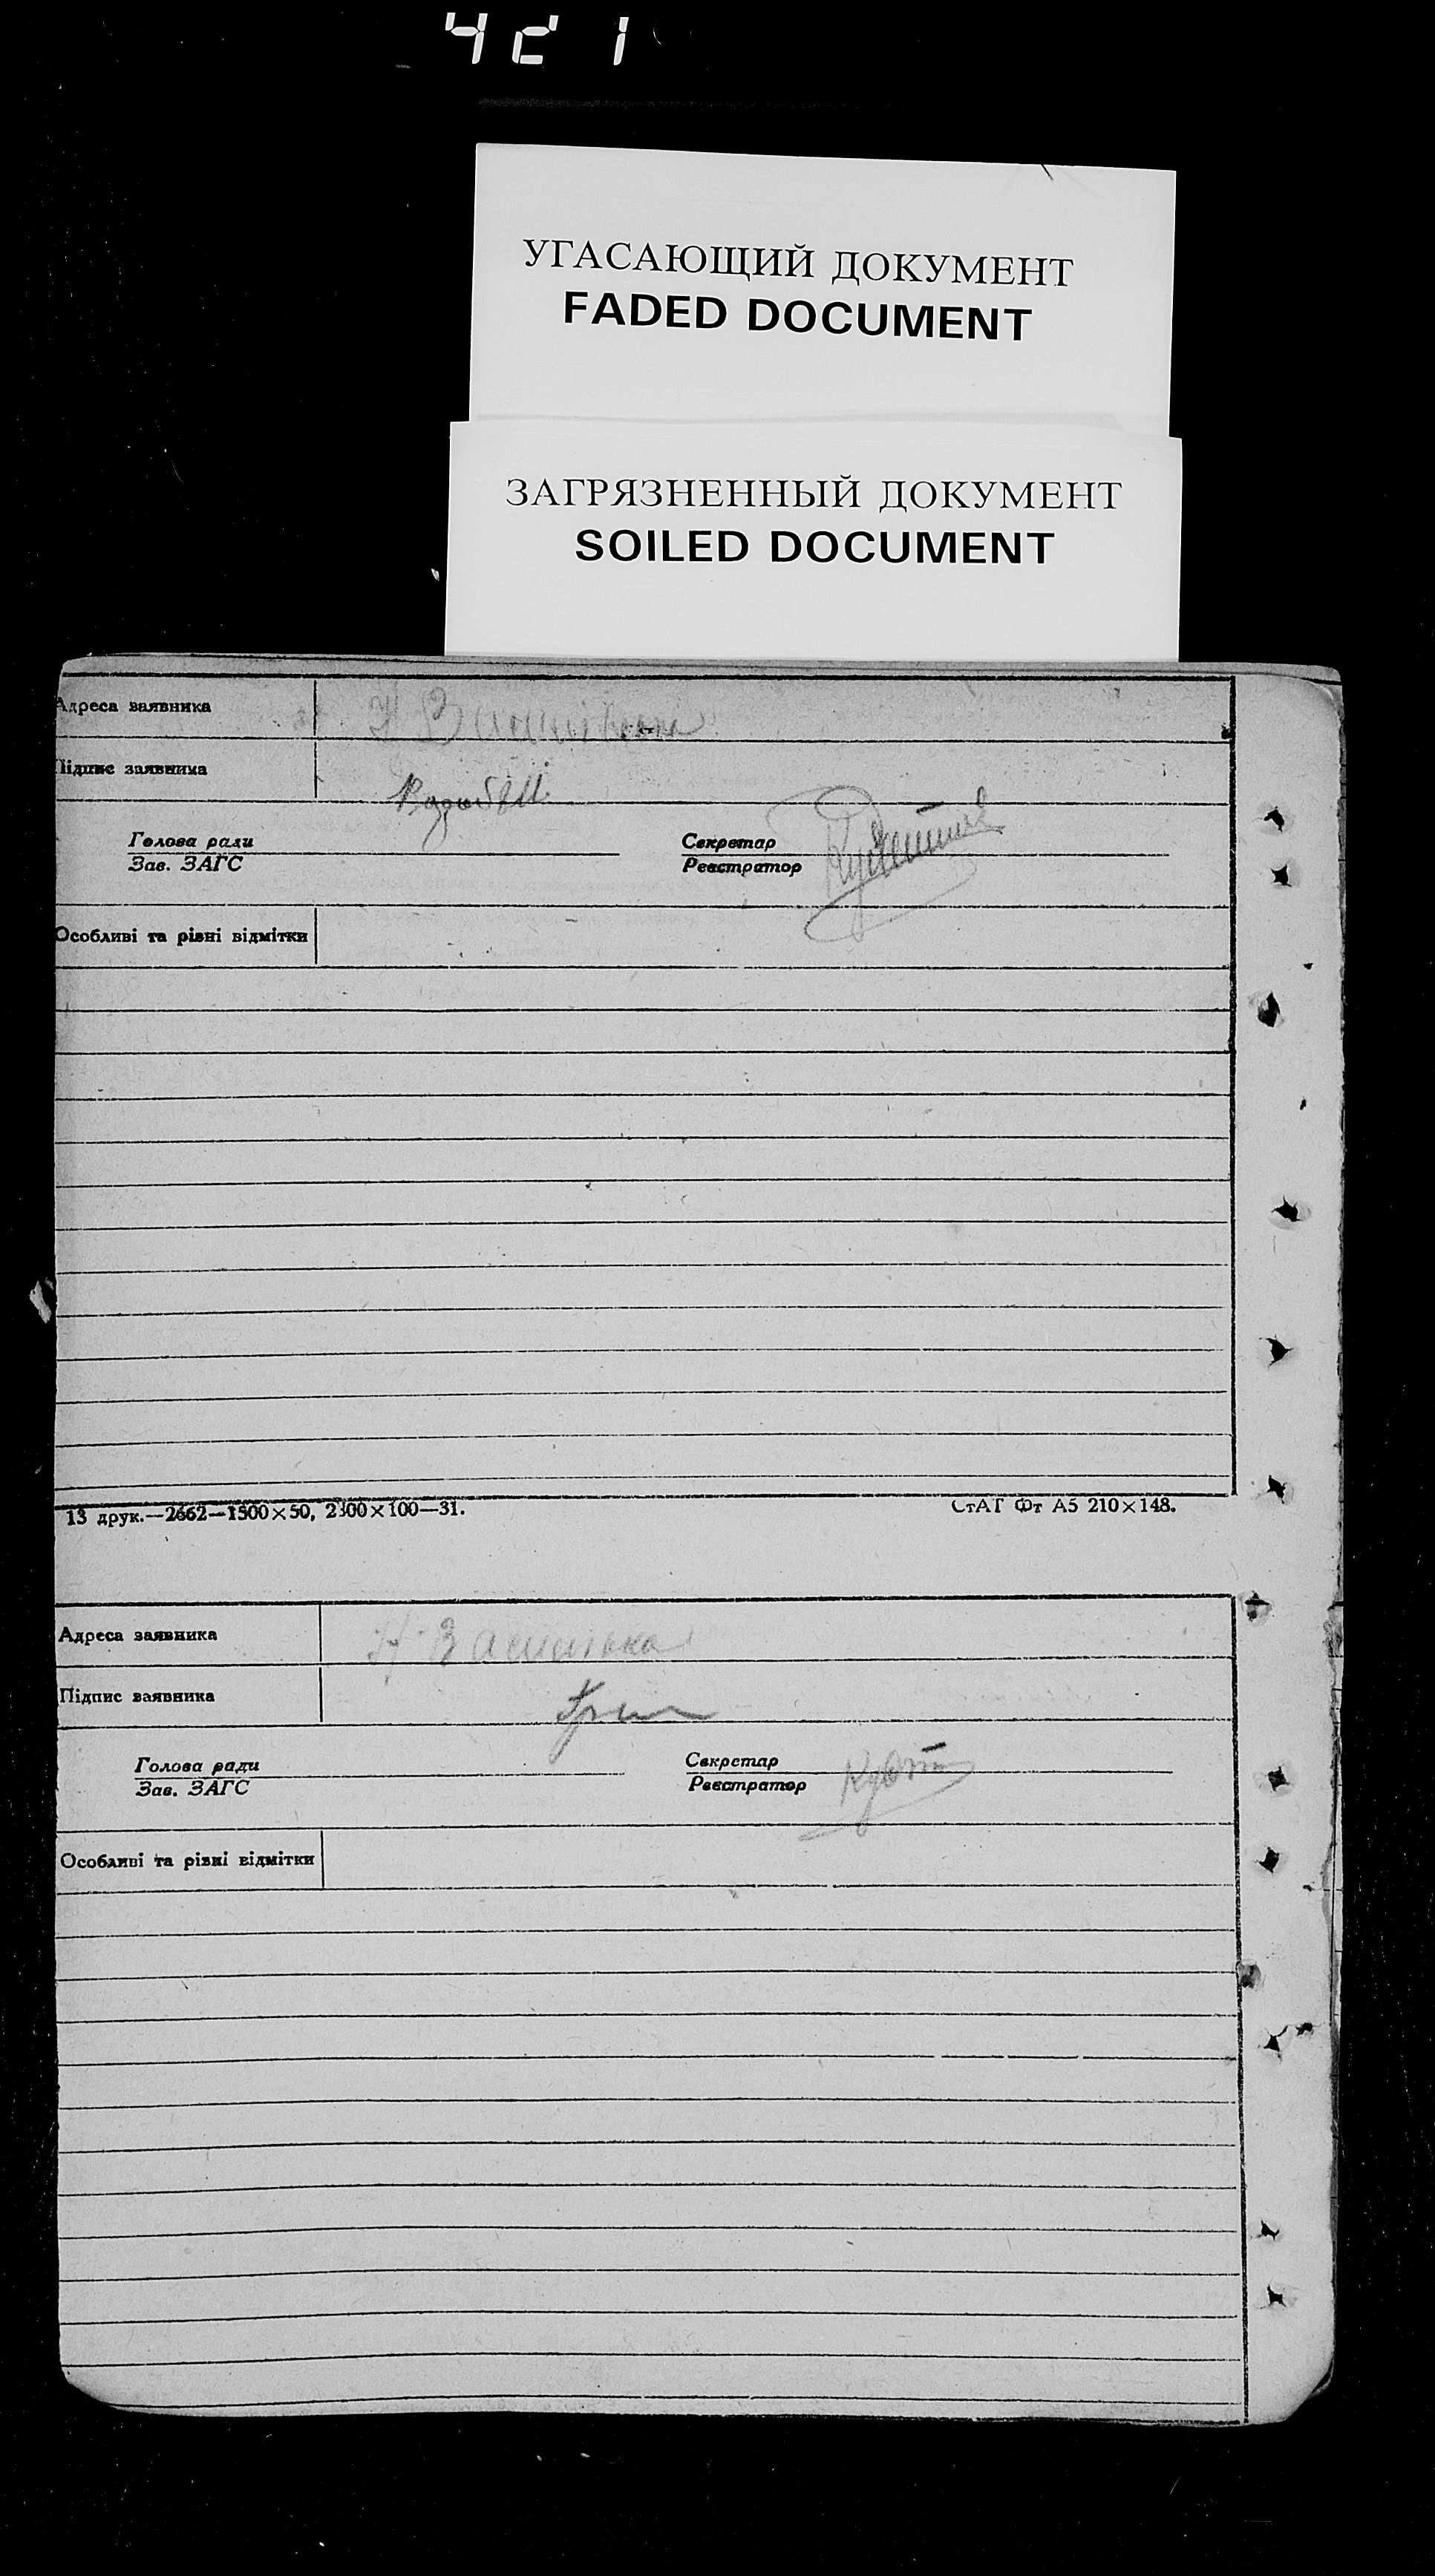 421
УГАСАЮЩИЙ ДОКУМЕНТ
FADED DOCUMENT
ЗАГРЯЗНЕННЫЙ ДОКУМЕНТ
SOILED DOCUMENT
Адреса заявника
Підпис заявника
Голова ради
Зав. ЗАГС
Секретар
Реєстратор
Особливі та різні відмітки
13 друк.—2662—1500×50, 2300×100—31.
СтАТ Фт А5 210×148.
Адреса заявника
Підпис заявника
Голова ради
Зав. ЗАГС
Секретар
Реєстратор
Особливі та різні відмітки